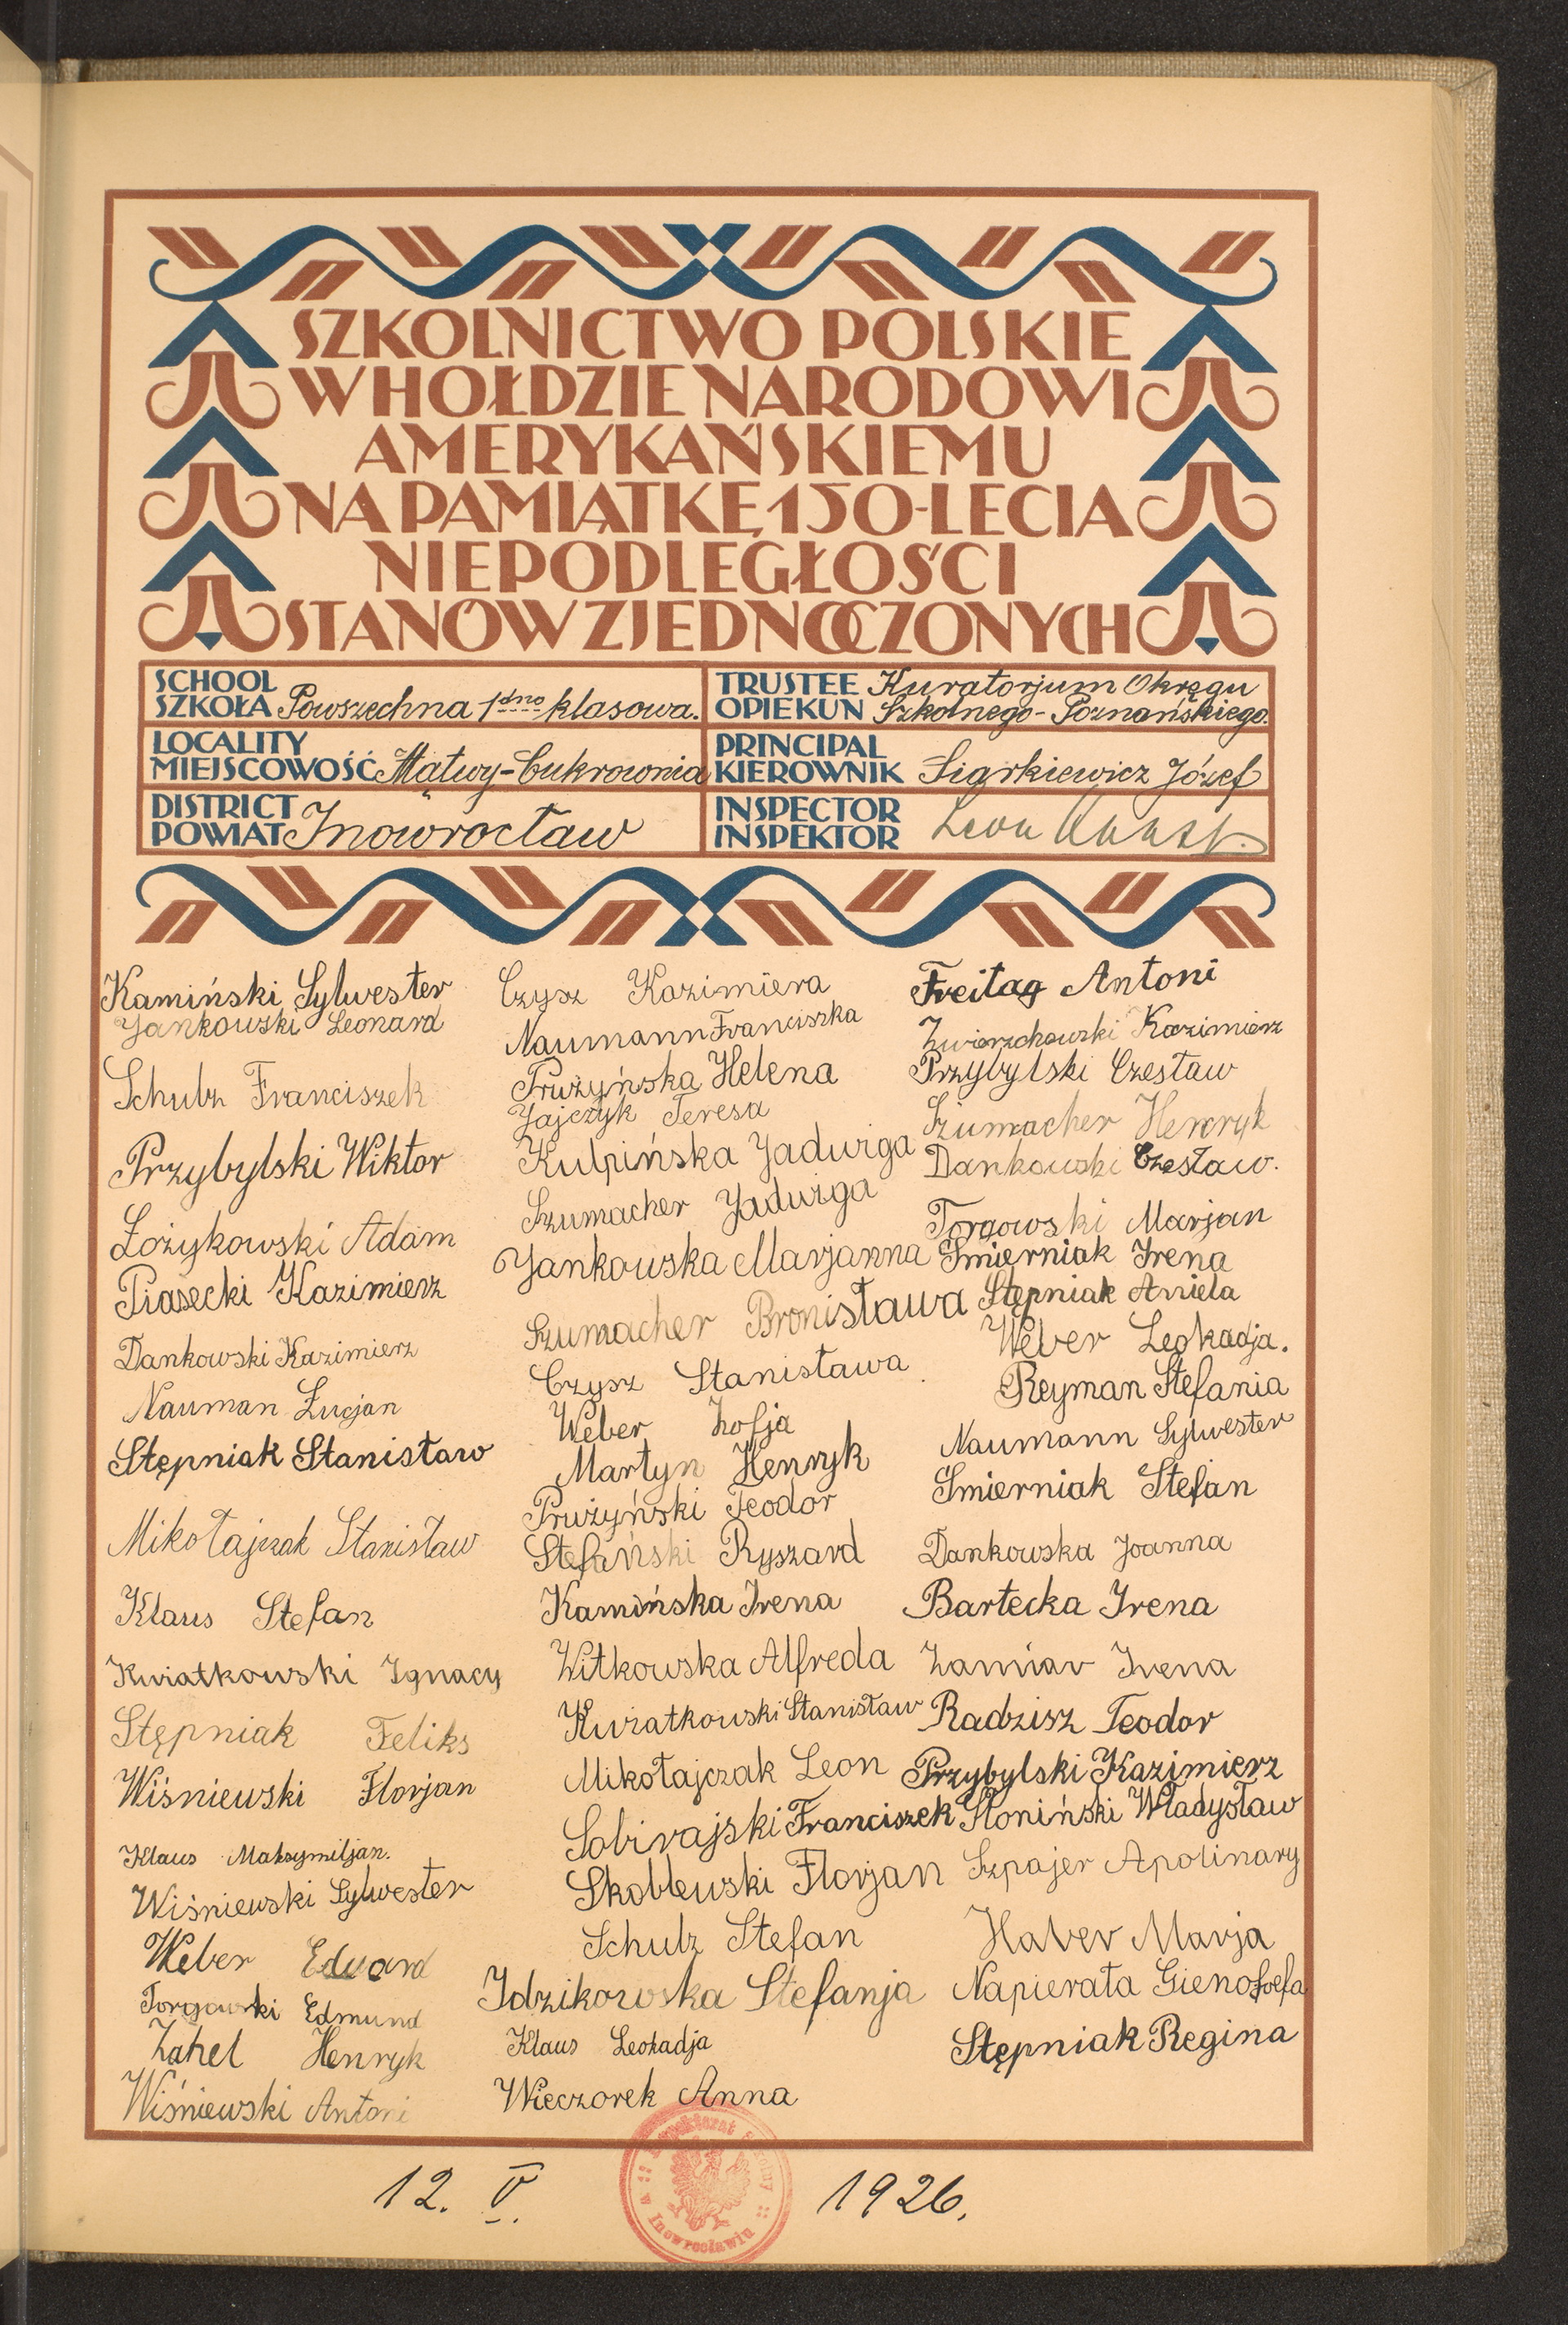 SZKOLNICTWO POLSKIE
W HOŁDZIE NARODOWI
AMERYKAŃSKIEMU
NA PAMIĄTKĘ 150-LECIA
NIEPODLEGŁOŚCI
STANÓW ZJEDNOCZONYCH
SCHOOL
SZKOŁA Powszechna 1dno klasowa.
TRUSTEE Kuratorjum Okręgu
OPIEKUN Szkolnego-Poznańskiego.
LOCALITY
MIEJSCOWOŚĆ Mątwy-Cukrownia
PRINCIPAL
KIEROWNIK Siarkiewicz Józef
DISTRICT
POWIAT Inowrocław
INSPECTOR
INSPEKTOR Leon
Kamiński Sylwester
Jankowski Leonard
Schulz Franciszek
Przybylski Wiktor
Łożykowski Adam
Piasecki Kazimierz
Dankowski Kazimierz
Nauman Łucjan
Stępniak Stanisław
Mikołajczak Stanisław
Klaus Stefan
Kwiatkowski Ignacy
Stępniak Feliks
Wiśniewski Florjan
Klaus Maksymiljan.
Wiśniewski Sylwester
Weber Edward
Torgowski Edmund
Zahel Henryk
Wiśniewski Antoni
Czysz Kazimiera
Naumann Franciszka
Prużyńska Helena
Jajczyk Teresa
Kulpińska Jadwiga
Szumacher Jadwiga
Jankowska Marjanna
Szumacher Bronisława
Czysz Stanisława
Weber Zofja
Martyn Henryk
Prużyński Teodor
Stefański Ryszard
Kamińska Irena
Witkowska Alfreda
Kwiatkowski Stanisław
Mikołajczak Leon
Sobirajski Franciszek
Skoblewski Florjan
Schulz Stefan
Idzikowska Stefanja
Klaus Leokadja
Wieczorek Anna
Freitag Antoni
Zwierzchowski Kazimierz
Przybylski Czesław
Szumacher Henryk
Dankowski Czesław.
Torgowski Marjan
Śmierniak Irena
Stępniak Aniela
Weber Leokadja.
Reyman Stefania
Naumann Sylwester
Śmierniak Stefan
Dankowska Joanna
Bartecka Irena
Zamiar Irena
Radzisz Teodor
Przybylski Kazimierz
Słoniński Władysław
Szpajer Apolinary
Haber Marja
Napierała Gienofoefa
Stępniak Regina
12. V. 1926.
Inspektorat Szkolny
w Inowrocławiu